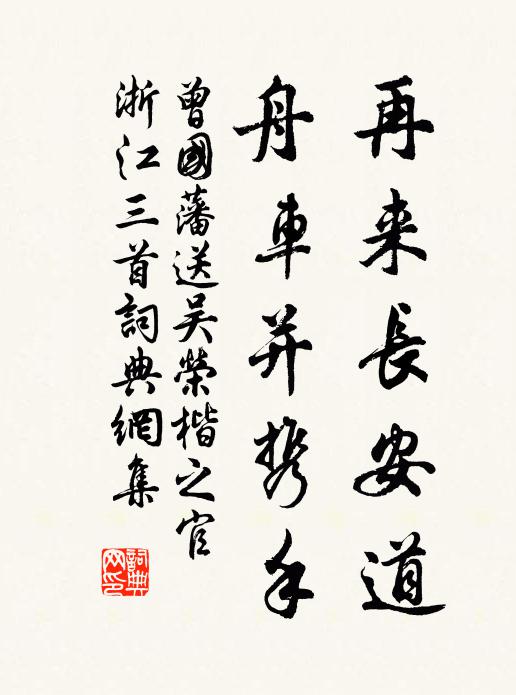 再来長安道
舟車并携手
曾國藩送吴榮楷之官
浙江三首詞典網集
詞典
网印